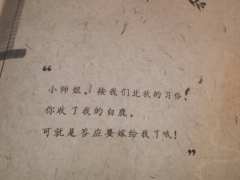 “
小师姐，按我们北狄的习俗！
你收了我的白鹿，
可就是答应要嫁给我了哦！
”